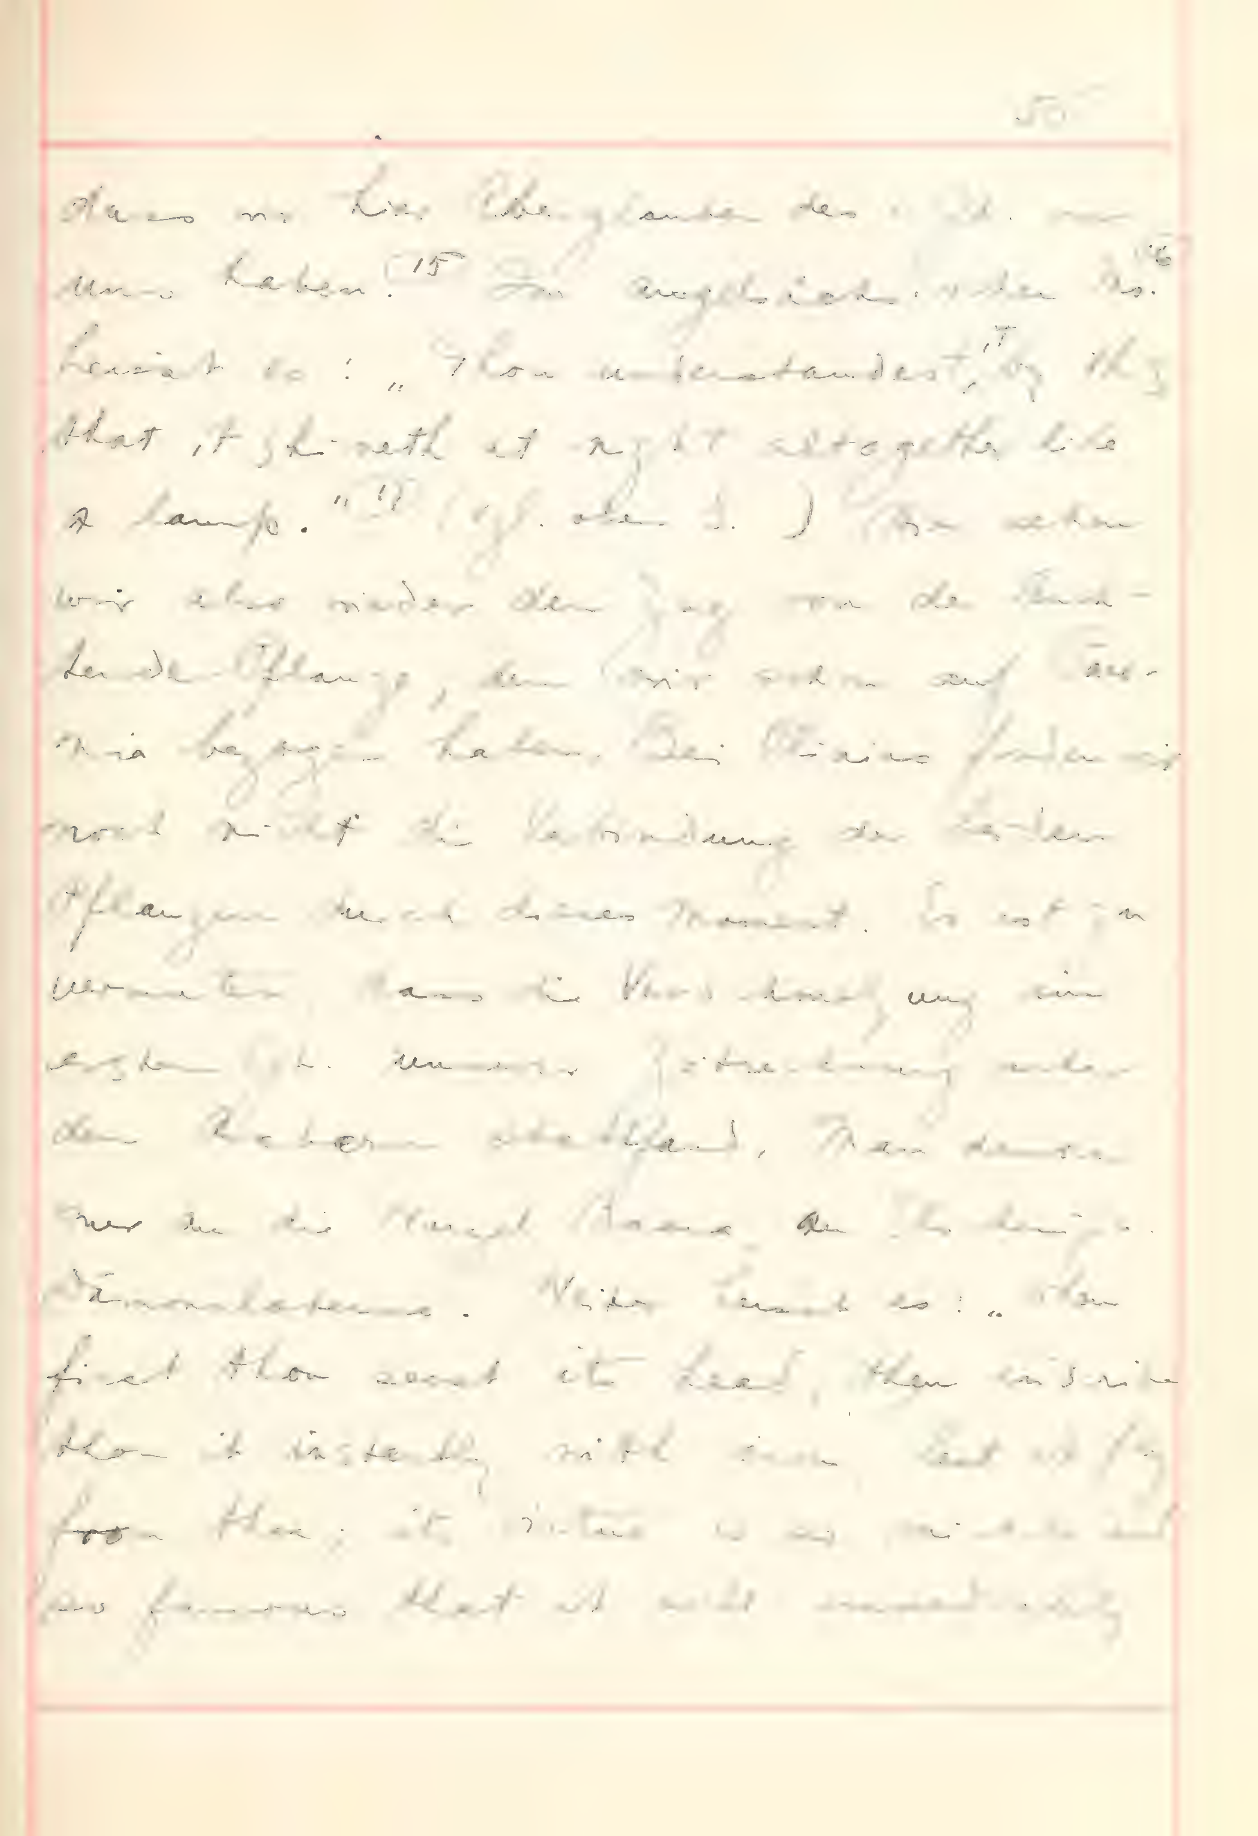 50
dass wir hier Aberglauben des vor
uns haben.(15 Im angelsächs. 
heisst es: „Thou understandest, by this
that it shineth at night altogether like
a lamp." (vgl. oben S. ) Da sehen
wir also wieder den Zug von der leuch-
tenden Pflanze, den wir schon auf
bezogen haben. Bei Plinius finden wir
noch nicht die Verbindung der beiden
Pflanzen durch dieses Moment. Es ist zu
vermuten, dass die Verschmelzung im
ersten Jh. unserer Zeitrechnung unter
den stattfand. Man denke
nur an die Wurzel Baara, des
Dämonglaubens. Weiter heisst es: „When
first thou seest its head, then inscribe
thou it instantly with iron lest it fly
from thee; its virtue is so and
so famous that it will immediately